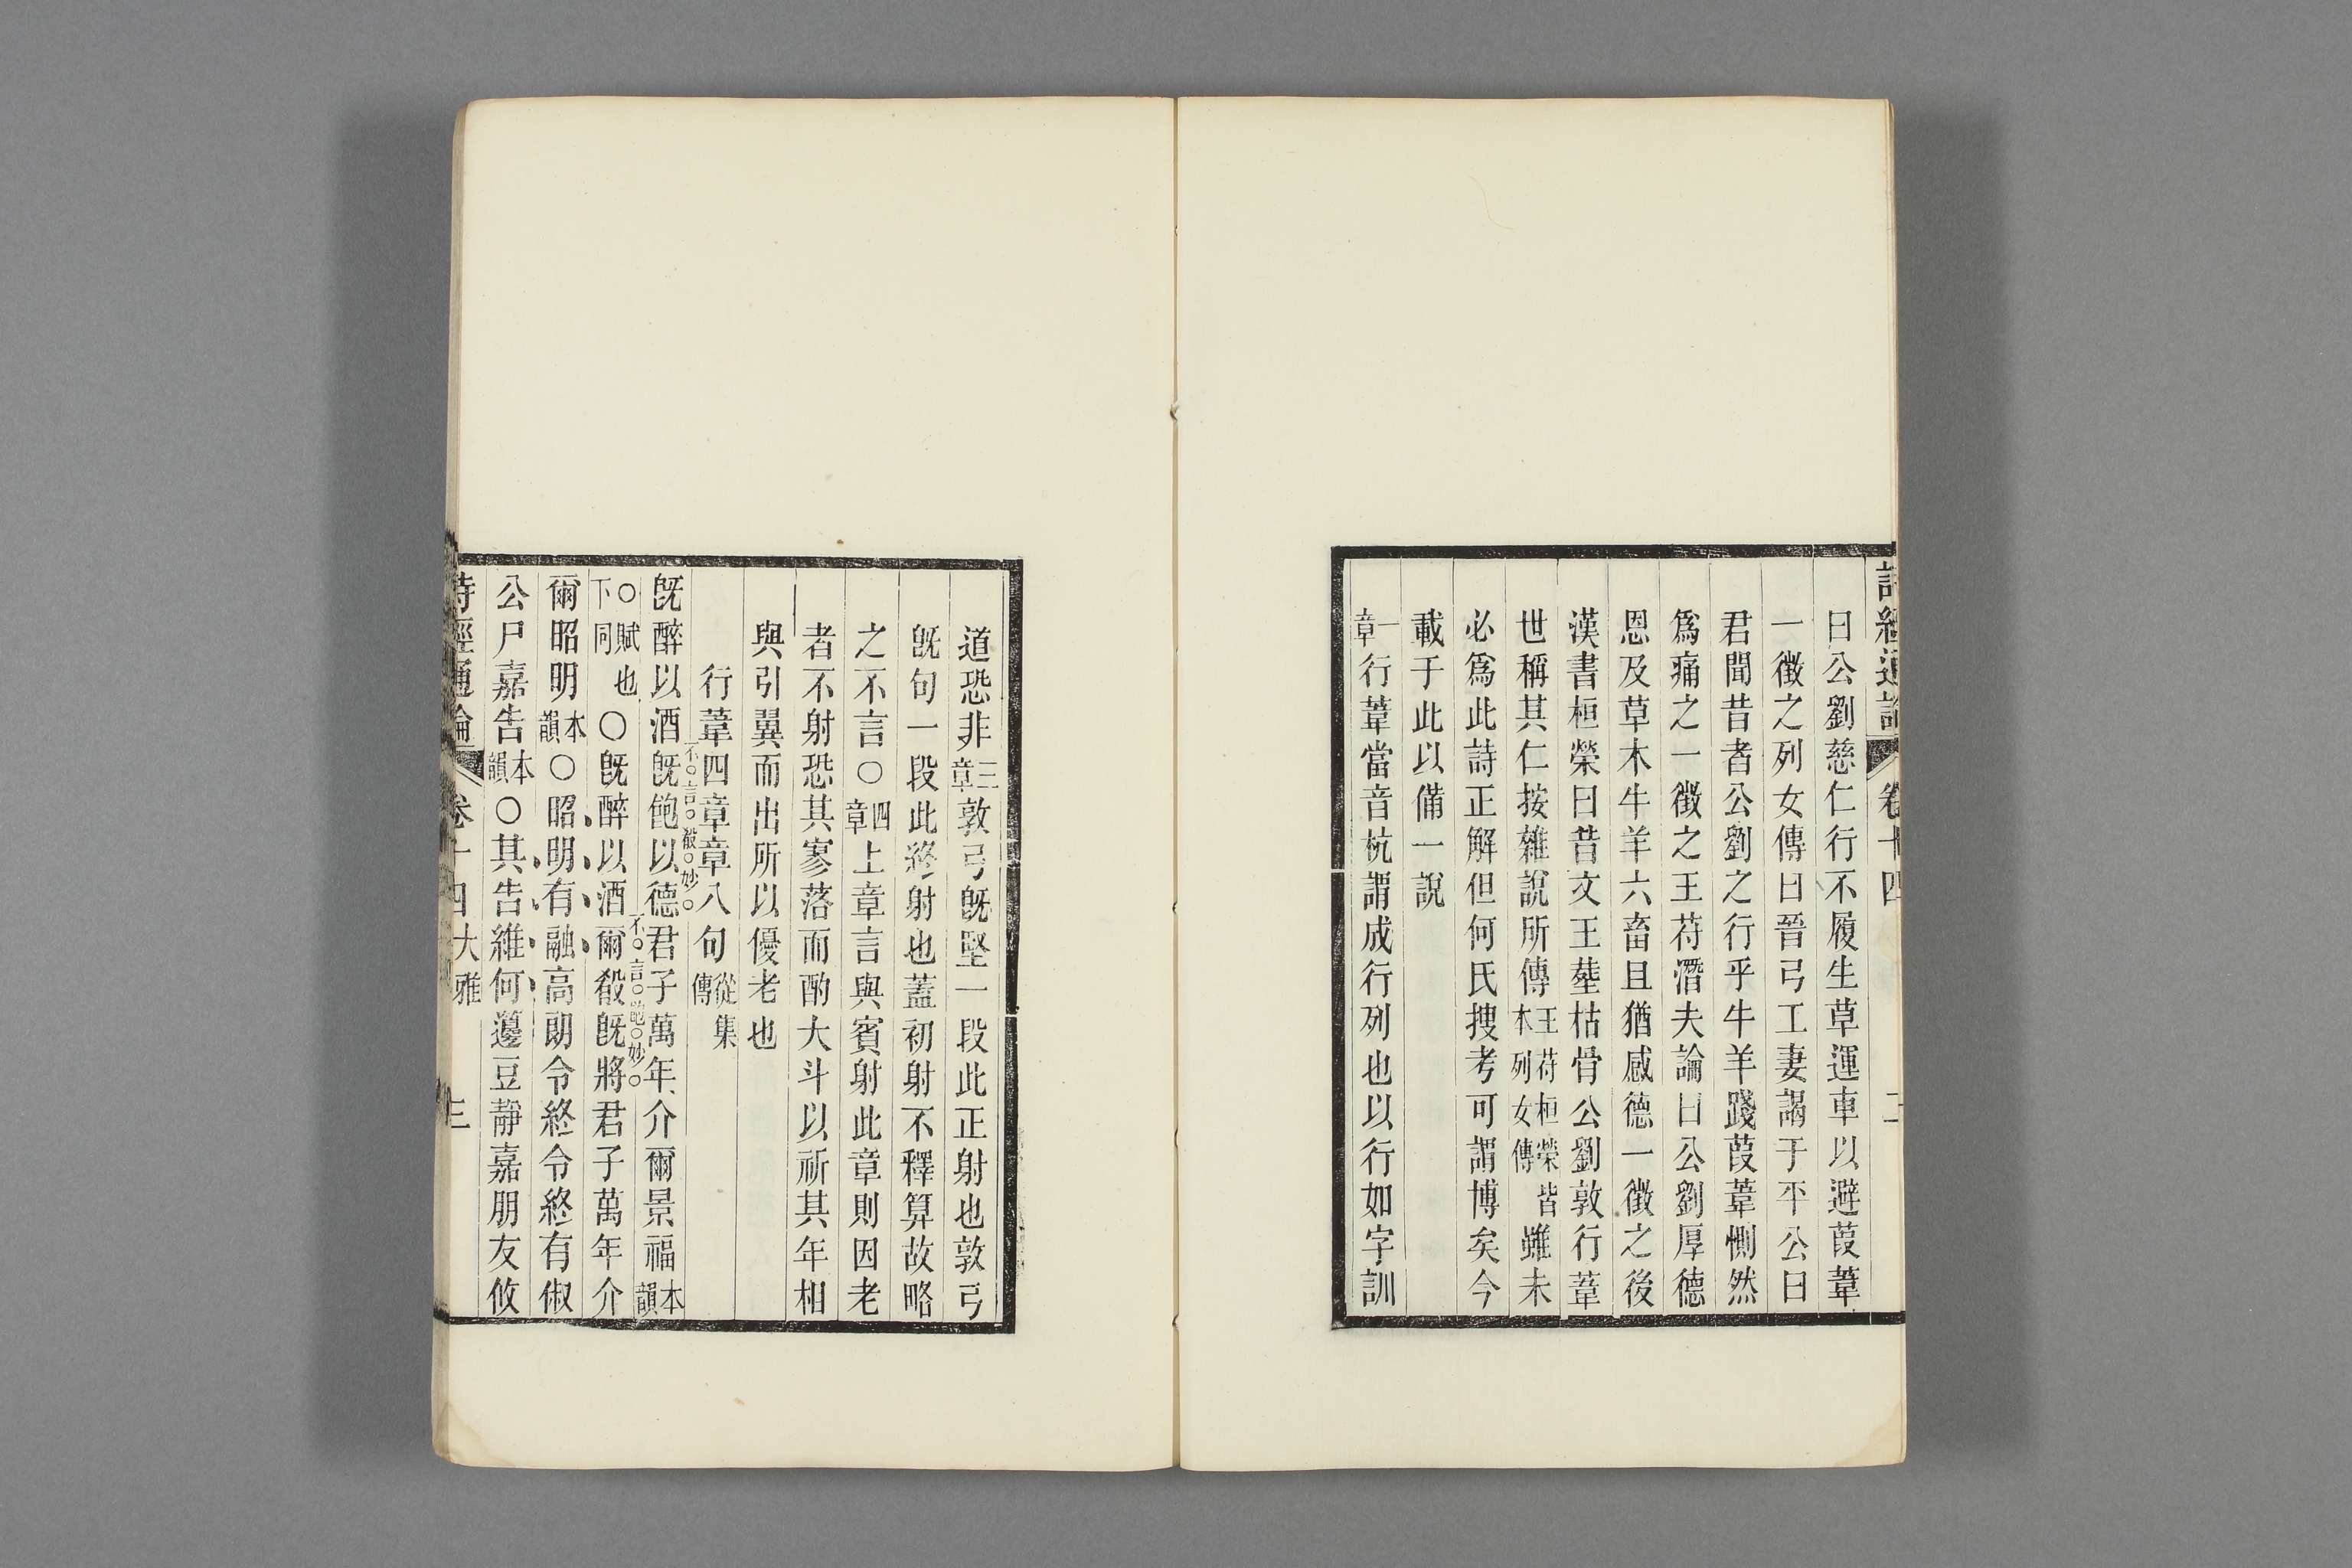 詩經通論 卷十四 二
曰公劉慈仁行不履生草運車以避葭葦
一徵之列女傳曰晉弓工妻謁于平公曰
君聞昔者公劉之行乎牛羊踐葭葦惻然
爲痛之一徵之王符潛夫論曰公劉厚德
恩及草木牛羊六畜且猶感德一徵之後
漢書桓榮曰昔文王葬枯骨公劉敦行葦
世稱其仁按雜說所傳王符桓榮皆本列女傳雖未
必爲此詩正解但何氏搜考可謂博矣今
載于此以備一說
一章行葦當音杭謂成行列也以行如字訓
道恐非三章敦弓旣堅一段此正射也敦弓
旣句一段此終射也蓋初射不釋算故略
之不言○四章上章言與賓射此章則因老
者不射恐其寥落而酌大斗以祈其年相
與引翼而出所以優老也
行葦四章章八句從集傳
旣醉以酒旣飽以德君子萬年介爾景福本韻
不言殽妙
○賦也下同○旣醉以酒爾殽旣將君子萬年介
不言飽妙
爾昭明本韻○昭明有融高朗令終令終有俶
公尸嘉告本韻○其告維何籩豆靜嘉朋友攸
詩經通論 卷十四大雅 三